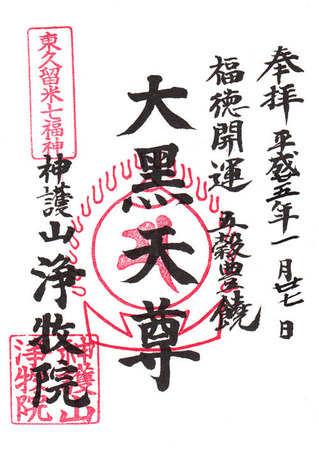 奉拝 平成五年一月廿七日
福徳開運 五穀豊饒
大黒天尊
東久留米七福神
神護山 浄牧院
神護山
浄牧院